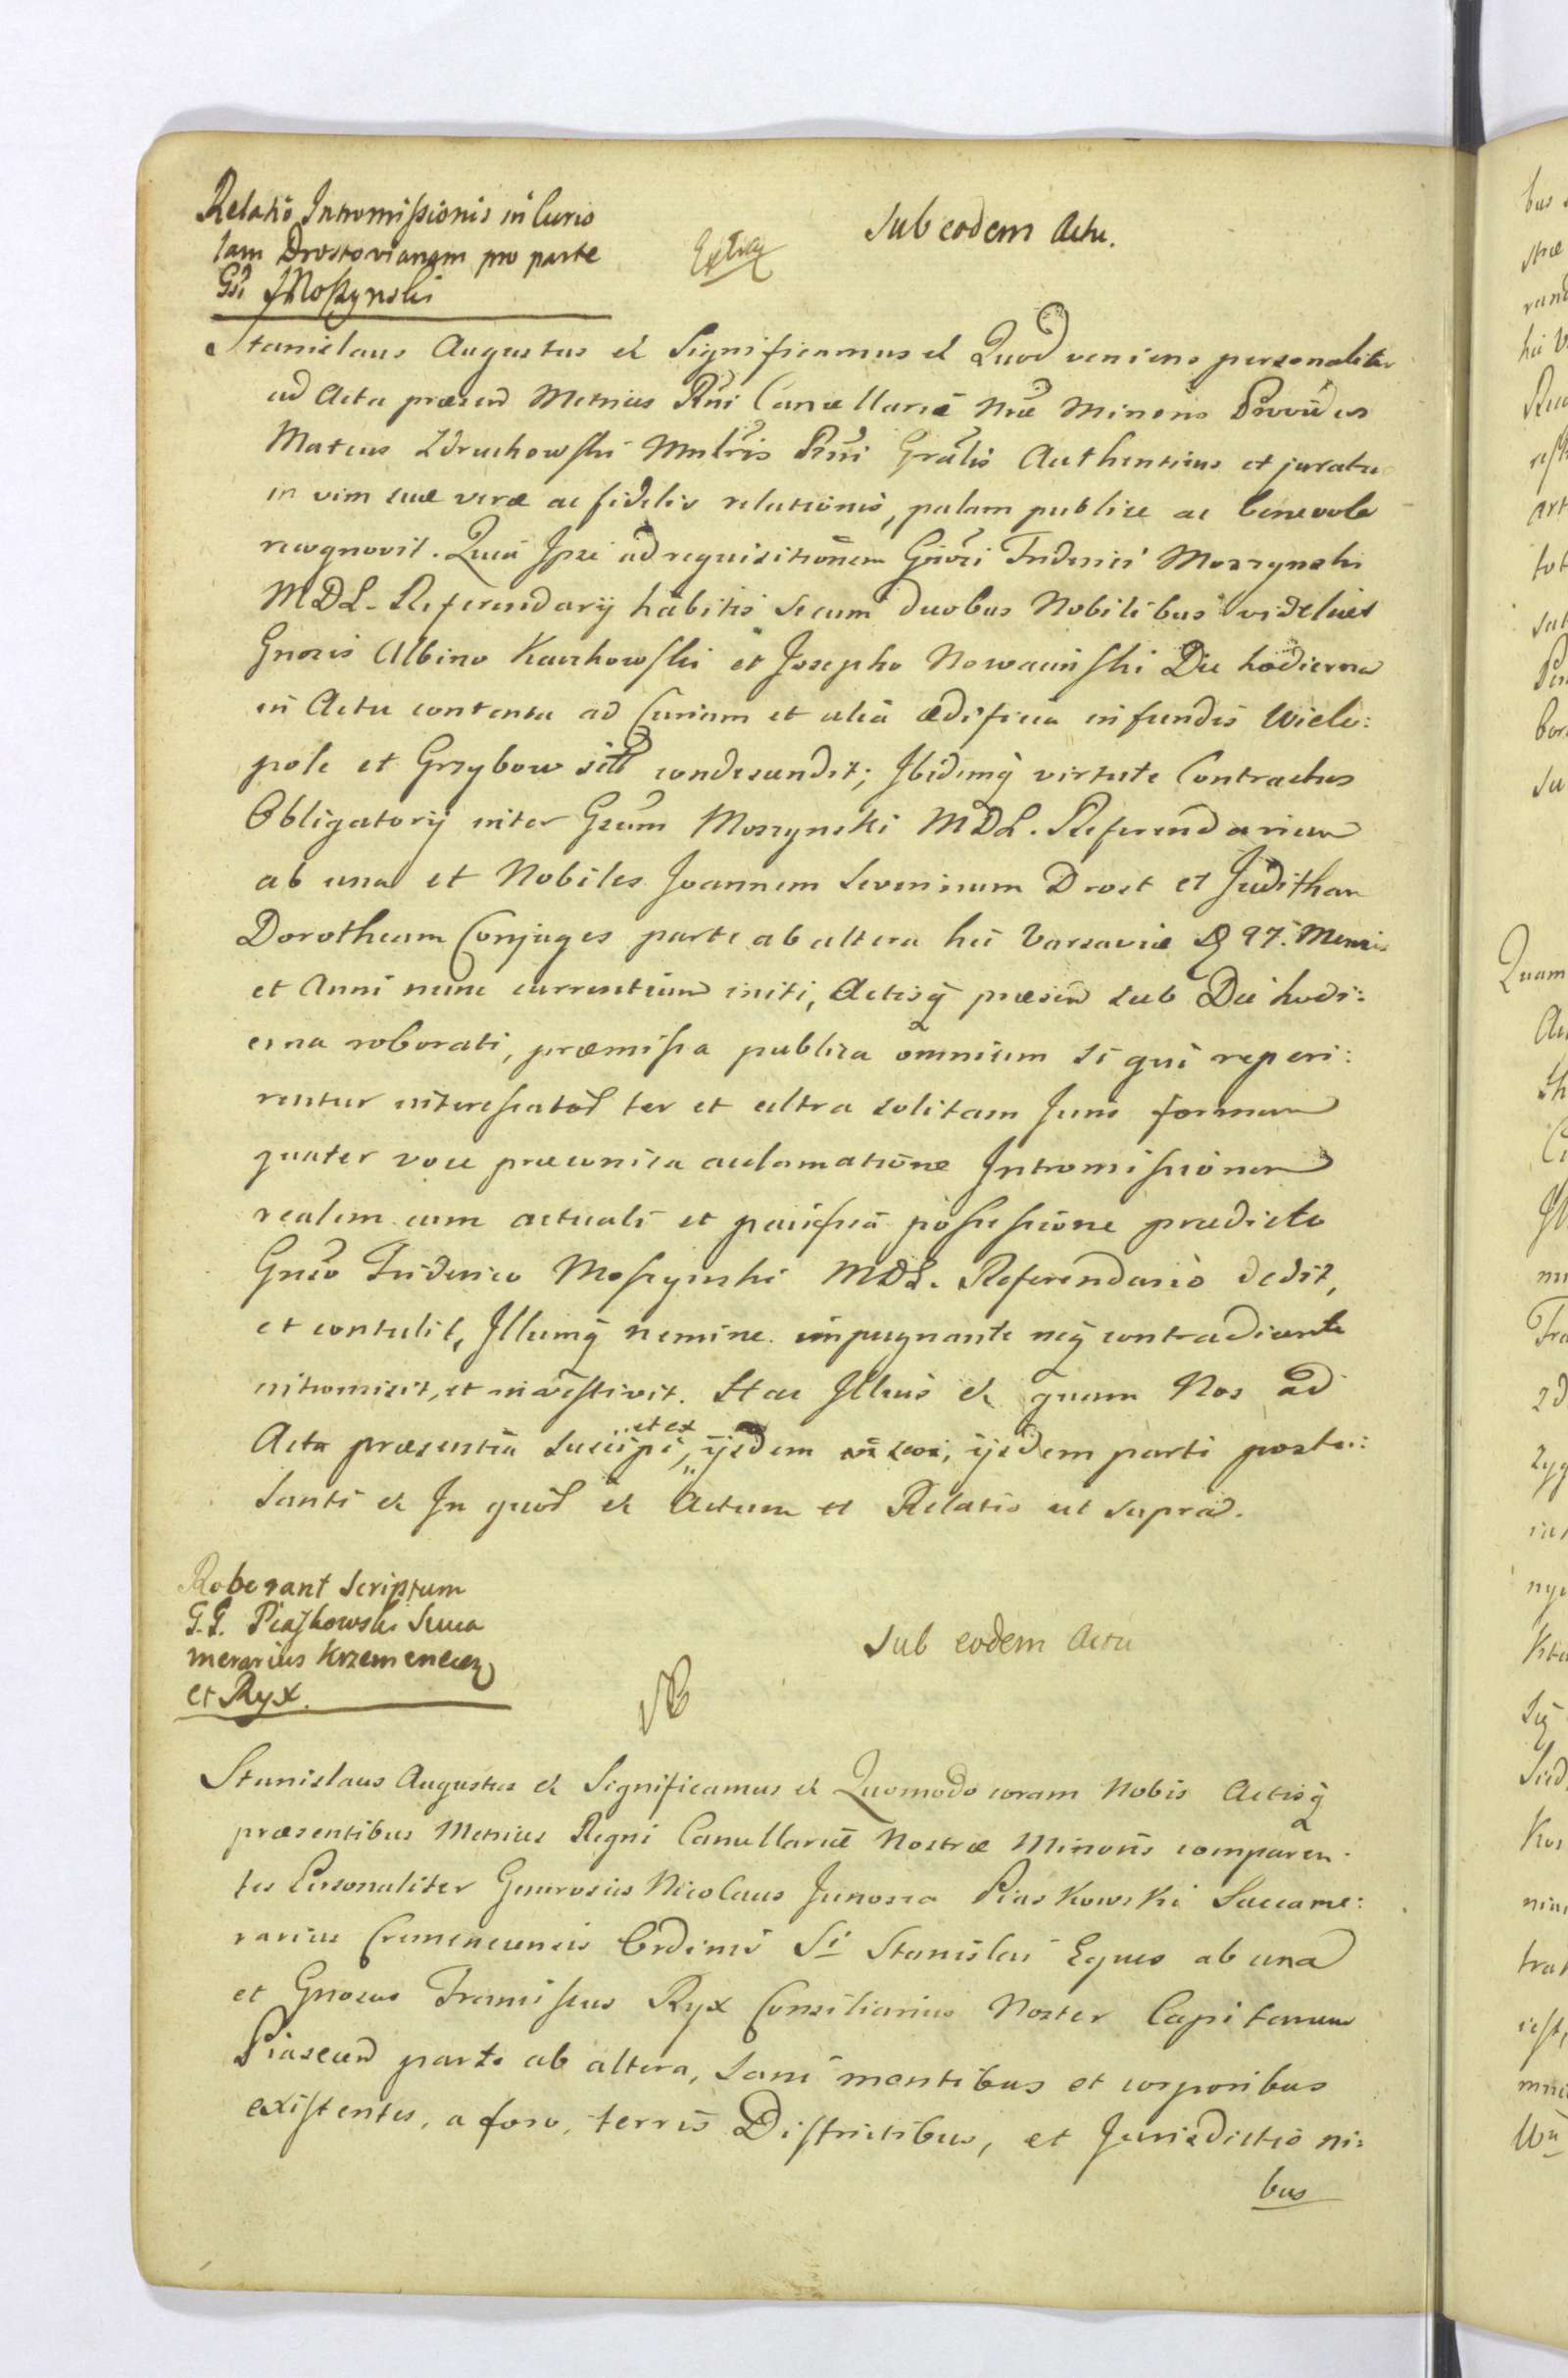 Relatio Intromissionis in Curio
lam Drostovianam pro parte
Gsi Moszynski
Sub eodem Actu.
Stanislaus Augustus et Significamus et Quod veniens personaliter
ad Acta præsend Metrices Rni Cancellariæ Nræ Minoris Providus
Mateus Zdruchowski Mnlris Rni Gralis Authenticus et juratus
in vim suæ veræ ac fidelis relationis, palam publice ac benevole
recognovit. Quia Ipse ad requisitionem Gnosi Friderici Moszynski
MDL. Referendarij habitis secum duobus Nobilibus videlicet
Gnosis Albino Karchowski et Josepho Nowacinski Die hodierna
in Actu contenta ad Curiam et alia ædificia in fundis Wielo:
pole et Grzybow sitt condescendit; Ibidemq virtute Contractus
Obligatorij inter Gsum Moszynski MDL. Referendarium
ab una et Nobiles Joannem Severinum Drost et Juditham
Dorotheam Conjuges parte ab altera hic Varsaviæ D 27. Mensis
et Anni nunc currentium initi, Actisq præsend sub Die hodi:
erna roborati, præmissa publica omnium si qui reperi:
rentur interessatod ter et ultra solitam Juris formam
quater voce præconica acclamatione Intromissionem
realem cum actuali et pacifica possessione prædicto
Gnso Friderico Moszynski MDL. Referendario dedit,
et contulit, Illumq nemine impugnante neq contradicente
intromisit, et investivit. Hac Illius et quam Nos ad
Acta præsentia suscipi, et ex ijsdem parti postu:
lanti et In quod et Actum et Relatio ut supra.
Roborant Scriptum
G.G. Piaskowski Succa
merarius Krzemenecen
et Ryx.
Sub eodem Actu
NB
Stanislaus Augustus et Significamus et Quomodo coram Nobis Actisq
præsentibus Metrices Regni Cancellariæ Nostræ Minoris comparen:
tes Personaliter Generosius Nicolaus Junosza Piaskowski Succame:
rarius Cremenecensis Ordinis Sti Stanislai Eques ab una
et Gnosus Franciscus Ryx Consiliarius Noster Capitaneus
Piasecen parte ab altera, sani mentibus et corporibus
existentes, a foro, terris Districtibus, et Jurisdictioni:
bus